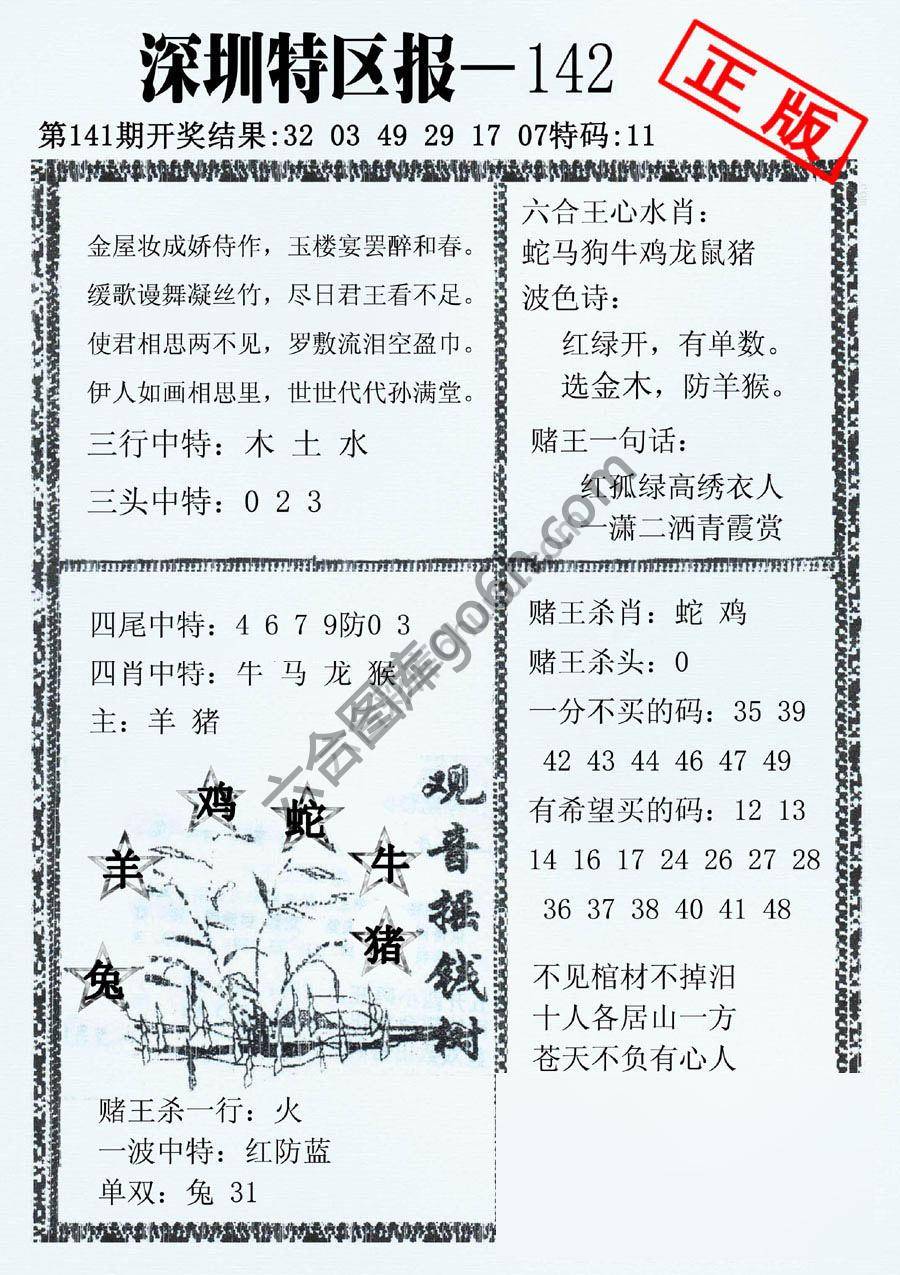 深圳特区报—142
正版
第141期开奖结果:32 03 49 29 17 07特码:11
金屋妆成娇侍作，玉楼宴罢醉和春。
缓歌谩舞凝丝竹，尽日君王看不足。
使君相思两不见，罗敷流泪空盈巾。
伊人如画相思里，世世代代孙满堂。
三行中特：木 土 水
三头中特：0 2 3
六合王心水肖：
蛇马狗牛鸡龙鼠猪
波色诗：
红绿开，有单数。
选金木，防羊猴。
赌王一句话：
红孤绿高绣衣人
一潇二洒青霞赏
四尾中特：4 6 7 9防0 3
四肖中特：牛 马 龙 猴
主：羊 猪
鸡
蛇
羊
牛
猪
兔
观音摇钱树
赌王杀一行：火
一波中特：红防蓝
单双：兔 31
赌王杀肖：蛇 鸡
赌王杀头：0
一分不买的码：35 39
42 43 44 46 47 49
有希望买的码：12 13
14 16 17 24 26 27 28
36 37 38 40 41 48
不见棺材不掉泪
十人各居山一方
苍天不负有心人
六合图库go6h.com